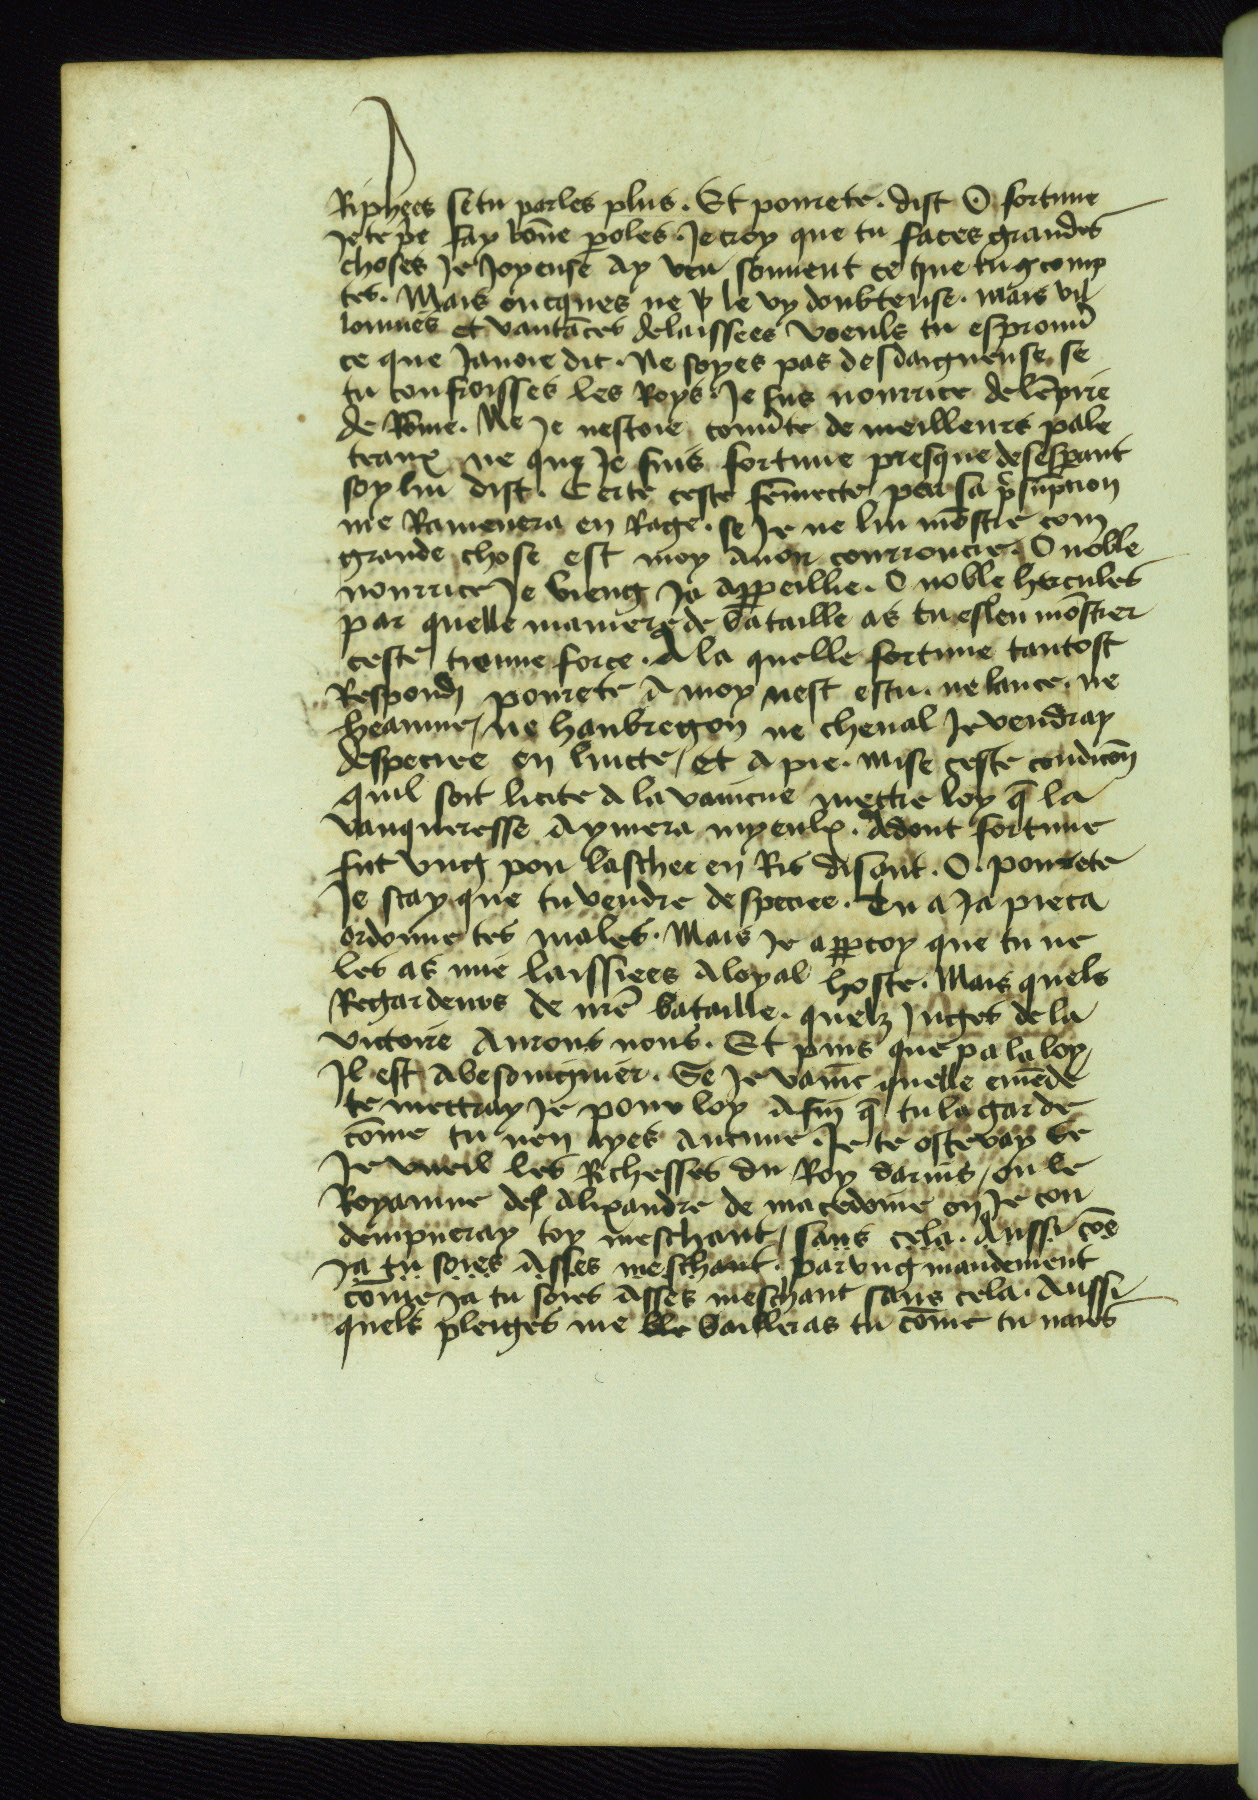 Riphees se tu parles plus. Et pourete. dist O fortune
Je te pe fay bōne poles. Je croy que tu faces grandes
choses Je Joyeuse ay veu souuent ce que tu comp
tes. Mais oncques ne le vy doubteuse. mais vil
lonnies et vantāces delaissees Voeuls tu
ce que Jauoie dit. Ne soyes pas desdaigneuse se
tu confroisses les Roys. Je fus nourrice de lēpire
de Rōme. Ne Je nestoie de meilleurs pale
teaux ne que Je suis fortune presque desesperant
soy lui dist. Certe ceste fēmecte par sa psūpcion
me Ramenera en Rage. se Je ne lui mōstre com
grande chose est moy auoir courroucie. O noble
nourrice Je vieng Ja appeillie. O noble hercules
par quelle maniere de bataille as tu esleu mōstrer
ceste tienne force. A la quelle fortune tantost
Respondj pourete A moy nest estu. ne lance. ne
heaume / ne haubregon ne cheual Je vendray
despecree en luicte / et a pie. Mise ceste condicōn
quil soit licite a la vaincue mettre loy q̄ la
vanqueresse Aymera myeulx. Adont fortune
fut vng pou laschee en Ris disant. O. pourete
Je scay que tu vendre despecree. Tu a Ja pieca
ordonne tes males. Mais Je appcoy que tu ne
les as mie laissiees a loyal hoste. Mais quels
Regardeurs de nrē bataille. quelz Juges de la
victoire Aurons nous. Et puis que p a la loy /
Il est Abesoingnier. Se Je vainc quelle emēde
te mettray Je pour loy Afin q̄ tu la garde
cōme tu nen ayes aucune. Je te osteray se
Je vueil les Richesses du Roy darius / ou le
Royaume del Alixandre de macedoine ou Je con
dempneray toy meschant / sans cela. Aussi cōe
Ja tu soies Asses meschant. par vng mandement
cōme Ja tu soies Asses meschant sans cela. Aussi
quels pleiges me ble bailleras tu cōme tu naies